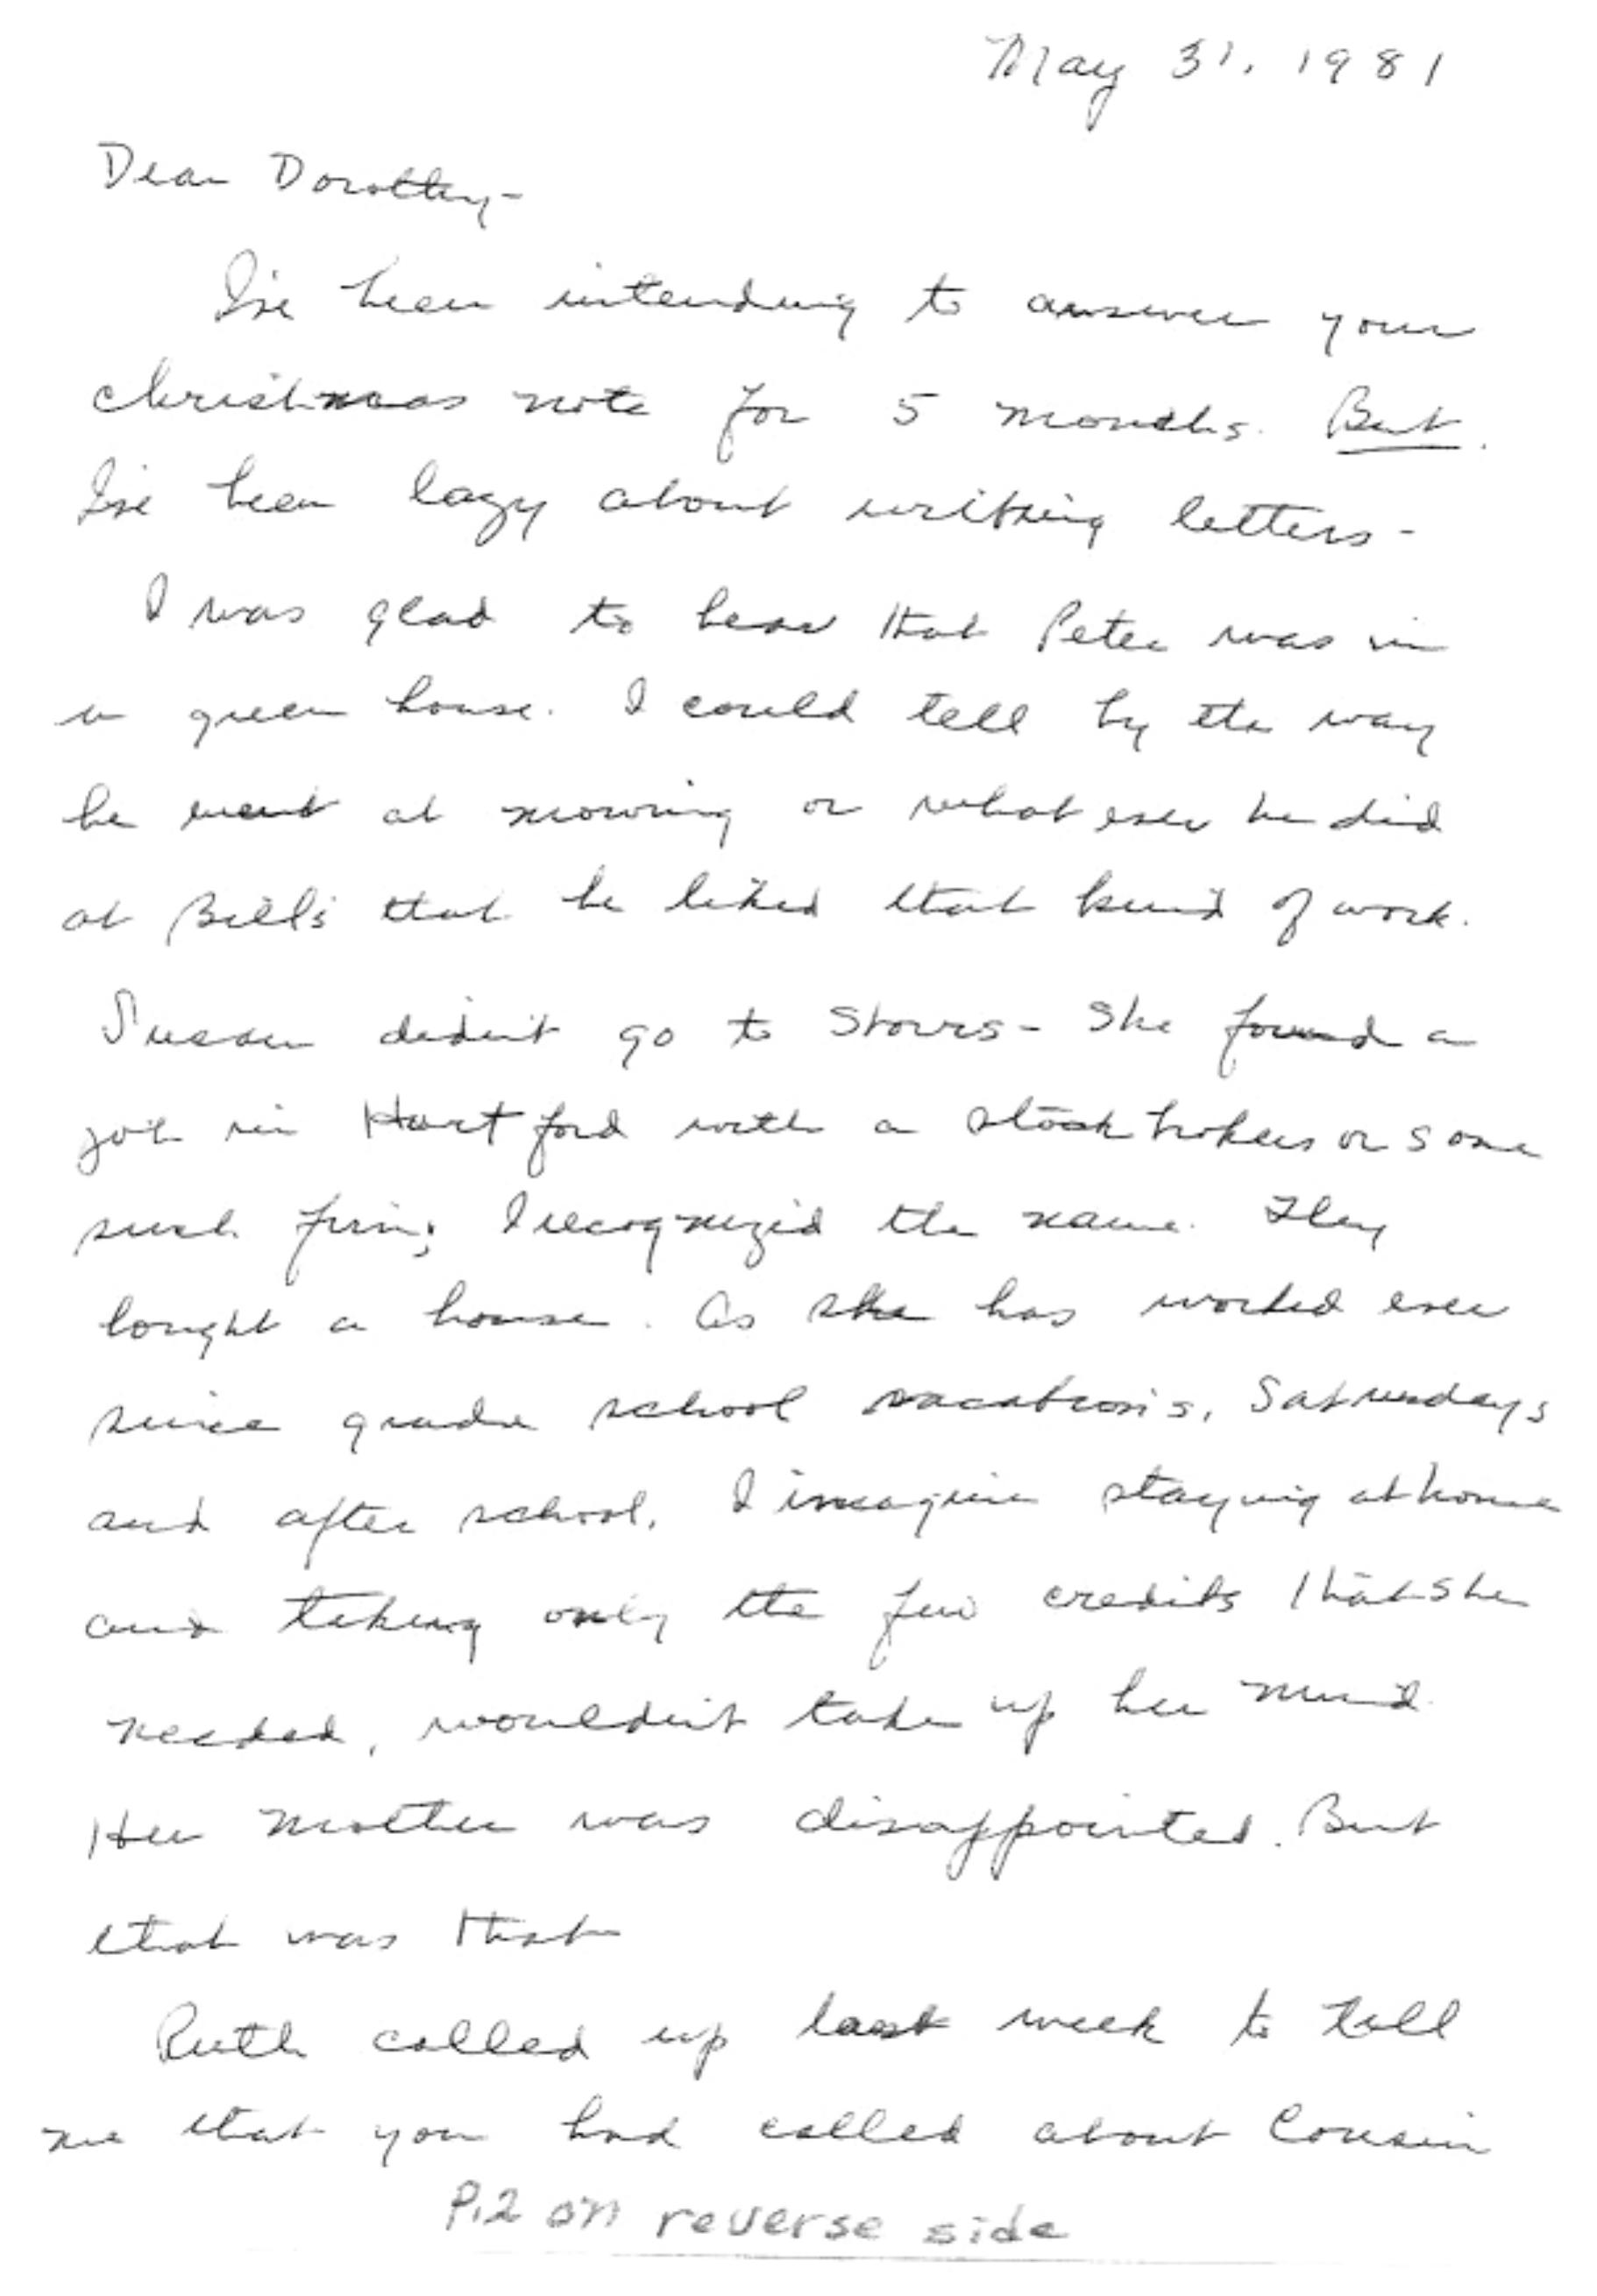 May 31, 1981
Dear Dorothy-
I've been intending to answer your
Christmas note for 5 months. But.
I've been lazy about writing letters-
I was glad to hear that Peter was in
a green house. I could tell by the way
he went at mowing or what ever he did
at Bill's that he liked that kind of work.
Susan didn't go to Storrs- She found a
job in Hartford with a stock brokers or some
such firm; I recognized the name. They
bought a house. As she has worked ever
since grade school vacations, Saturdays
and after school, I imagine staying at home
and taking only the few credits that she
needed, wouldn't take up her mind.
Her mother was disappointed. But
that was that
Ruth called up last week to tell
me that you had called about Cousin
P.2 on reverse side